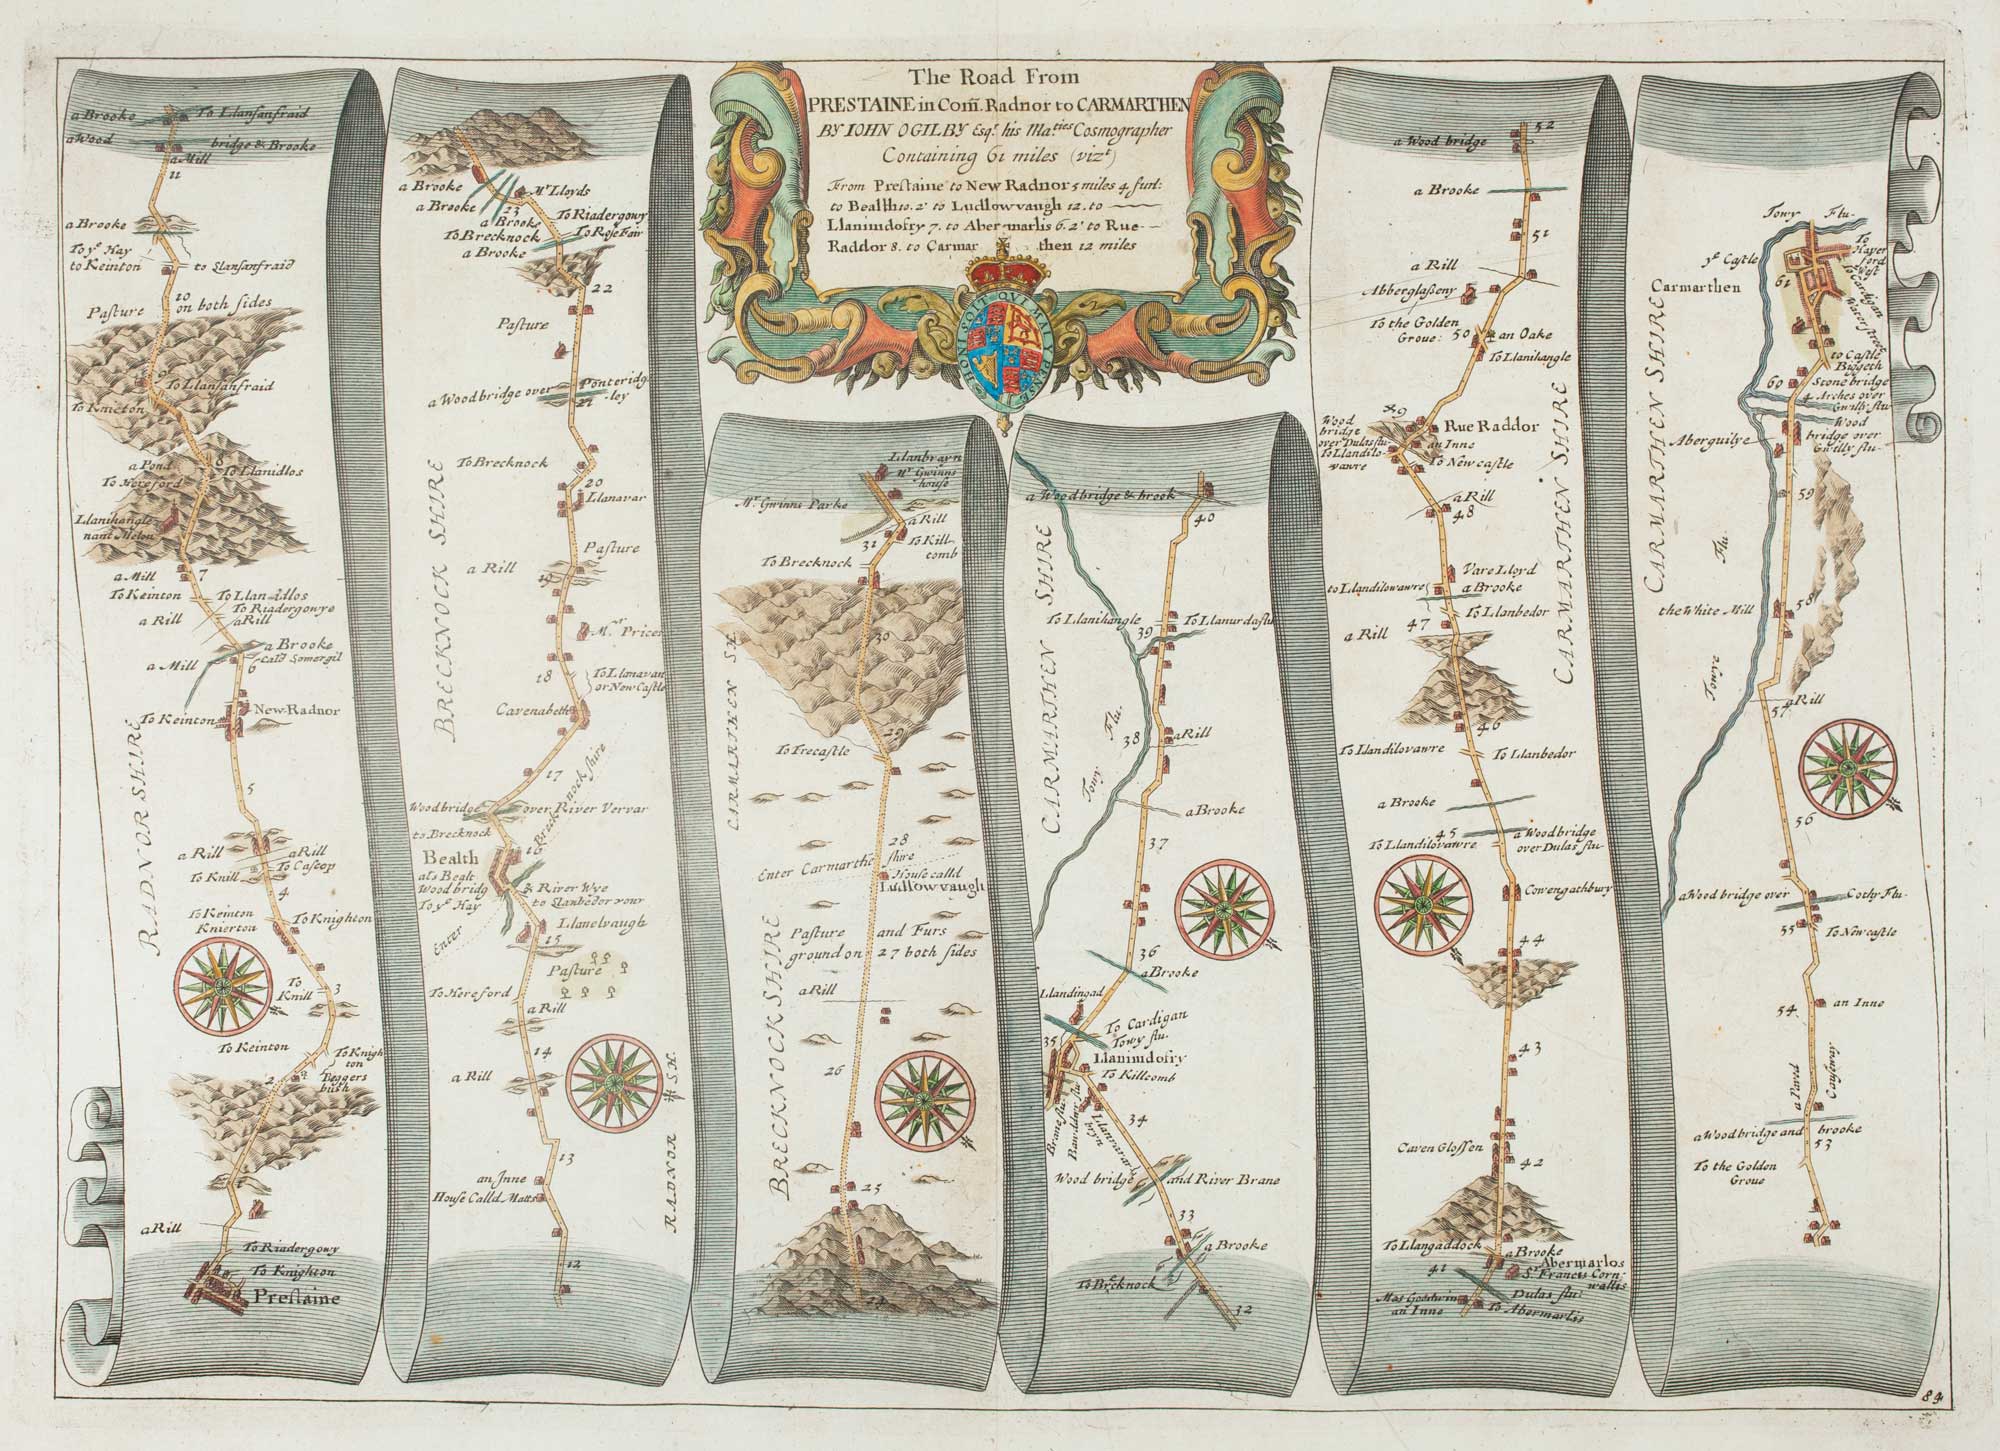 The Road From
PRESTAINE in Com̃. Radnor to CARMARTHEN
BY IOHN OGILBY Esqr. his Maties Cosmographer
Containing 61 miles (vizt)
From Prestaine to New Radnor 5 miles 4 furl:
to Bealth 10. 2' to Ludlowvaugh 12. to
Llanimdofry 7. to Abermarlis 6. 2' to Rue-
Raddor 8. to Carmarthen 12 miles
HONI SOIT QUI MAL Y PENSE
a Brooke
To Llansanfraid
a Wood
bridge & Brooke
a Mill
11
a Brooke
To ye Hay
to Keinton
to Slansanfraid
10
Pasture
on both sides
9
To Llansanfraid
To Knieton
8
a Pond
To Hereford
To Llanidlos
Llanihangle
nant Melon
7
a Mill
To Keinton
To Llan-idlos
To Riadergowye
a Rill
a Rill
a Brooke
Cald Somergil
a Mill
6
New-Radnor
To Keinton
RADNOR SHIRE
5
a Rill
a Rill
To Cascop
To Knill
4
To Keinton
Knierton
To Knighton
To
Knill
3
To Keinton
To Knigh
ton
Beggers
bush
2
a Rill
To Riadergowy
To Knighton
Prestaine
a Brooke
Mr. Lloyds
a Brooke
23
a Brooke
To Riadergowy
To Brecknock
To Rosefair
a Brooke
22
Pasture
a Wood bridge over
Ponteridg
ley
21
To Brecknock
20
Llanavar
BRECKNOCK SHIRE
Pasture
a Rill
19
Mr. Prices
18
To Llanavan
or New Castle
Cavenabeth
17
Brecknockshire
Wood bridge
over River Vervar
to Brecknock
Bealth
als Bealt
16
Wood bridg
River Wye
To ye Hay
to Slanbedorvour
Enter
Llanelvaugh
15
Pasture
To Hereford
a Rill
14
a Rill
RADNOR SH.
13
an Inne
House Calld Matts
12
Llanbrayn
Mr. Gwinns
house
Mr. Gwinns Parke
a Rill
31
To Kill-
comb
To Brecknock
30
CARMARTHEN SH.
29
To Trecastle
28
Enter Carmarthe
shire
House calld
Ludlowvaugh
Pasture and Furs
ground on 27 both sides
a Rill
BRECKNOCKSHIRE
26
25
24
a Wood bridge & brook
40
CARMARTHEN SHIRE
To Llanihangle
39
To Llanurdastu
Towy Flu.
38
a Rill
a Brooke
37
36
a Brooke
Llandingad
To Cardigan
Towy flu.
35
Llanimdofry
To Killcomb
Brane flu.
34
Wood bridge
and River Brane
33
a Brooke
To Brecknock
32
52
a Wood bridge
a Brooke
51
a Rill
Abberglasseny
To the Golden
Groue:
50
an Oake
To Llanihangle
49
Rue Raddor
Wood
bridge
over Dulas flu
To Llandilo-
vawre
an Inne
To Newcastle
a Rill
48
CARMARTHEN SHIRE
Vare Lloyd
to Llandilovawre
a Brooke
To Llanbedor
47
a Rill
46
To Llandilovawre
To Llanbedor
a Brooke
45
a Wood bridge
over Dulas flu
To Llandilovawre
Cowengathbury
44
43
Caven Glossen
42
To Llangaddock
a Brooke
Abermarlos
Sr. Francis Corn
wallis
41
Dulas flu
Mas Goodwin
an Inne
To Abermarlis
Towy Flu-
ye Castle
To
Haver
ford
West
Carmarthen
61
to Castle
Biggeth
60
Stone bridge
4 Arches over
Gwilly flu
Aberguilye
Wood
bridge over
Gwilly flu-
59
CARMARTHEN SHIRE
58
the White Mill
Towye Flu.
57
a Rill
56
a Wood bridge over
Cothy Flu-
55
To Newcastle
54
an Inne
a Paved Causeway
a Wood bridge and brooke
53
To the Golden
Groue
84